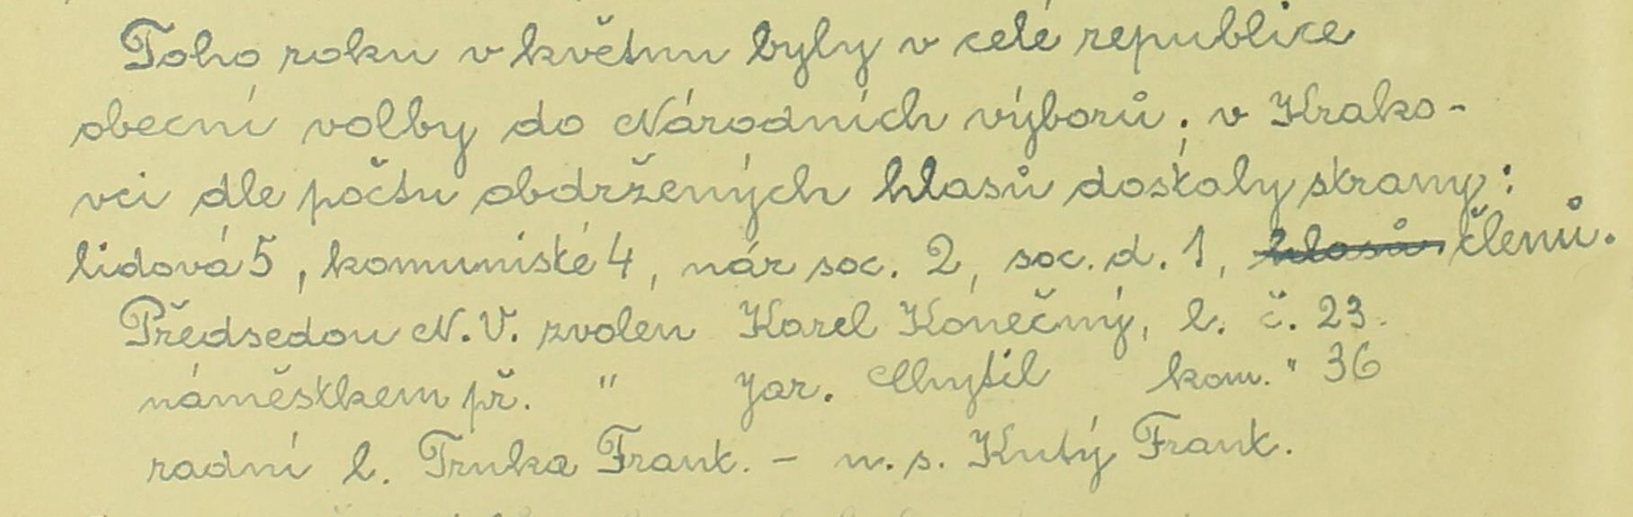 Toho roku v květnu byly v celé republice
obecní volby do Národních výborů; v Krako-
vci dle počtu obdržených hlasů dostaly strany:
lidová 5, komunisté 4, nár soc. 2, soc. d. 1, hlasů členů.
Předsedou N. V. zvolen Karel Konečný, l. č. 23.
náměstkem př. " Jar. Chytil kom. " 36
radní l. Trnka Frant. - n. s. Kutý Frant.